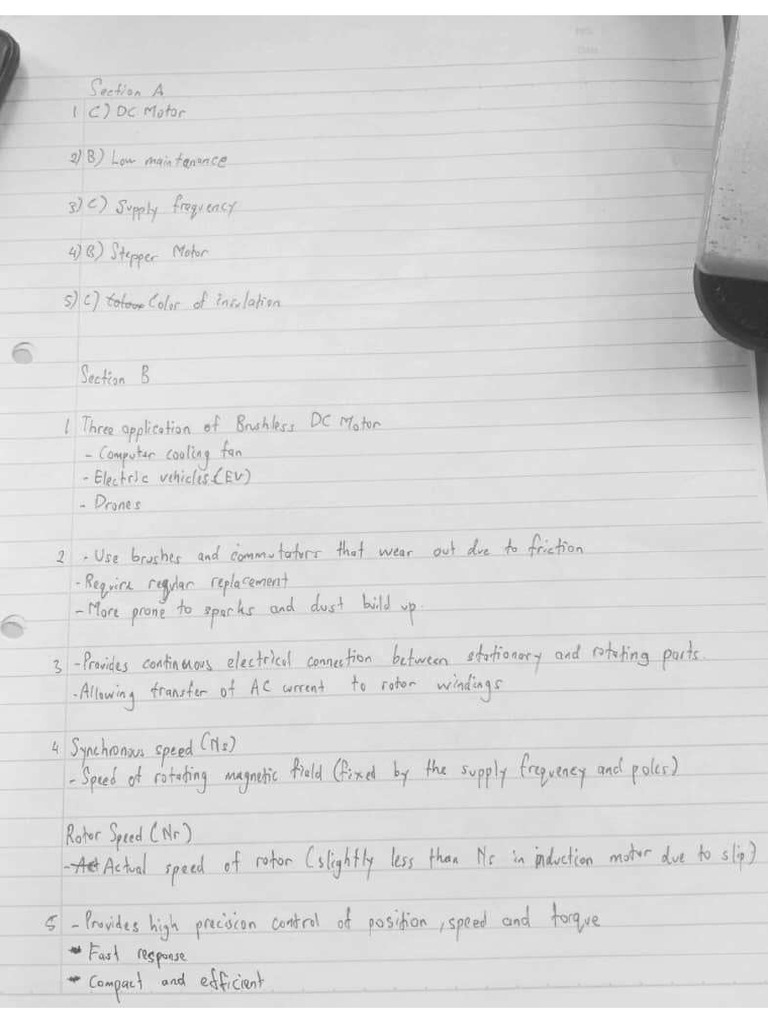 Section A
1 C) DC Motor
2) B) Low maintanance
3) C) Supply frequency
4) B) Stepper Motor
5) C) Color of insulation
Section B
1 Three application of Brushless DC Motor
- Computer cooling fan
- Electric vehicles (EV)
- Drones
2 - Use brushes and commutators that wear out due to friction
- Require regular replacement
- More prone to sparks and dust build up.
3 - Provides continuous electrical connection between stationary and rotating parts.
- Allowing transfer of AC current to rotor windings
4 Synchronous speed (Ns)
- Speed of rotating magnetic field (fixed by the supply frequency and poles)
Rotor Speed (Nr)
- Actual speed of rotor (slightly less than Ns in induction motor due to slip)
5 - Provides high precision control of position, speed and torque
- Fast response
- Compact and efficient